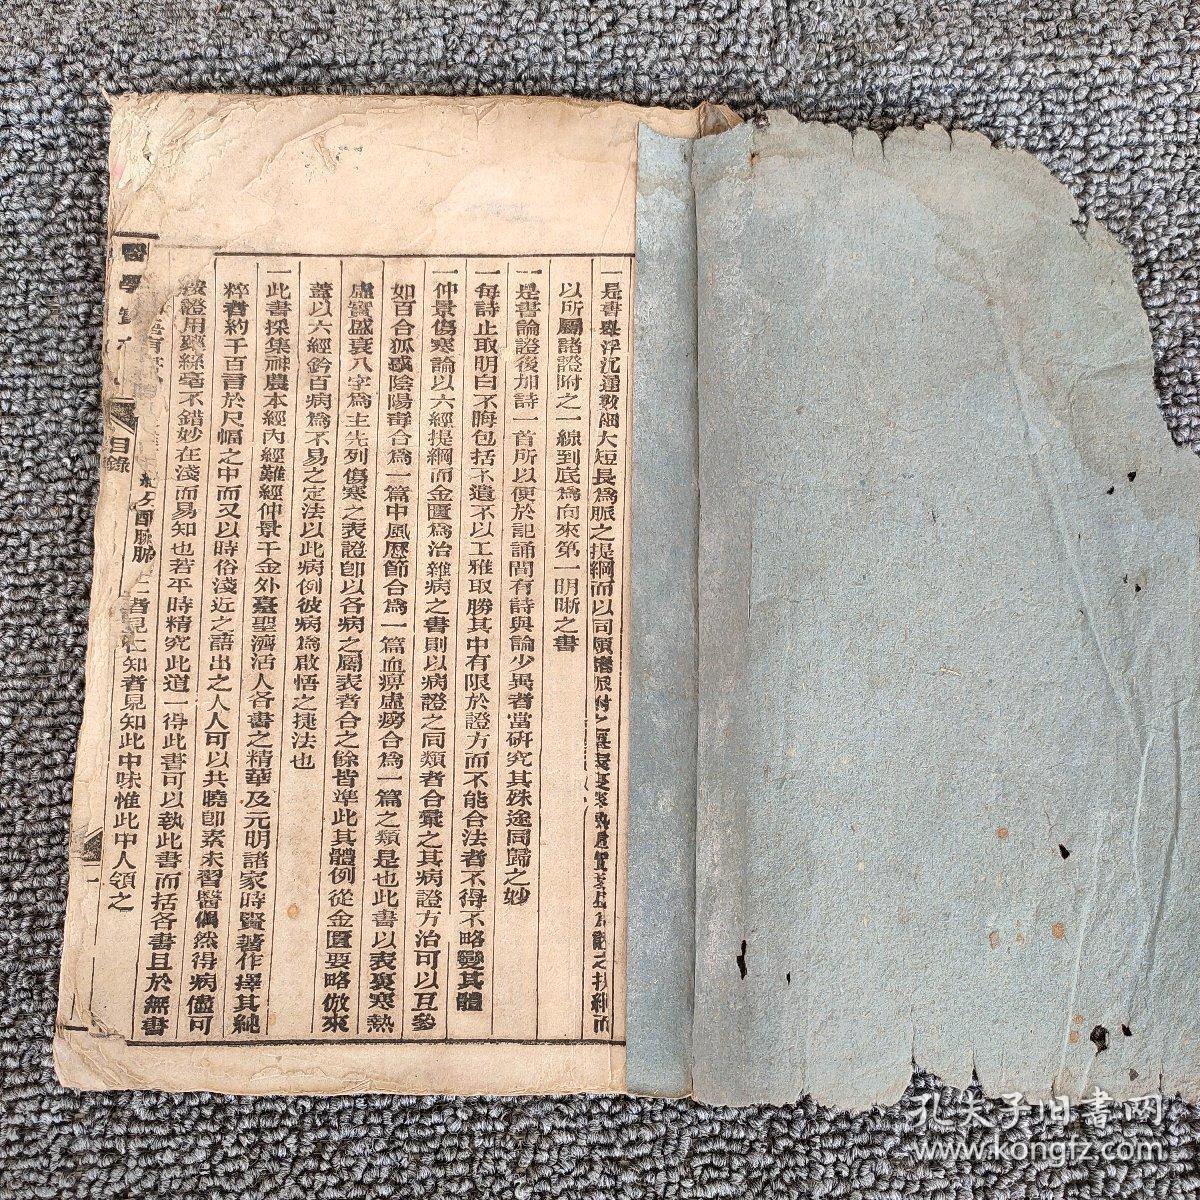 一是書以浮沉遲數細大短長為脈之提綱而以
以所屬諸證附之一線到底為向來第一明晰之書
一是書論證後加詩一首所以便於記誦間有詩與論少異者當研究其殊途同歸之妙
一每詩止取明白不晦包括不遺不以工雅取勝其中有限於證方而不能合法者不得不略變其體
一仲景傷寒論以六經提綱而金匱為治雜病之書則以病證之同類者合彙之其病證方治可以互參
如百合狐惑陰陽毒合為一篇中風歷節合為一篇血痹虛癆合為一篇之類是也此書以表裏寒熱
虛實盛衰八字為主先列傷寒之表證即以各病之屬表者合之餘皆準此其體例從金匱要略倣來
蓋以六經鈐百病為不易之定法以此病例彼病為啟悟之捷法也
一此書採集神農本經內經難經仲景千金外臺聖濟活人各書之精華及元明諸家時賢著作擇其純
粹者約千百言於尺幅之中而又以時俗淺近之語出之人人可以共曉即素未習醫偶然得病儘可
按證用藥絲毫不錯妙在淺而易知也若平時精究此道一得此書可以執此書而括各書且於無書
者見仁知者見知此中味惟此中人領之
醫學
目錄
孔夫子旧书网
www.kongfz.com